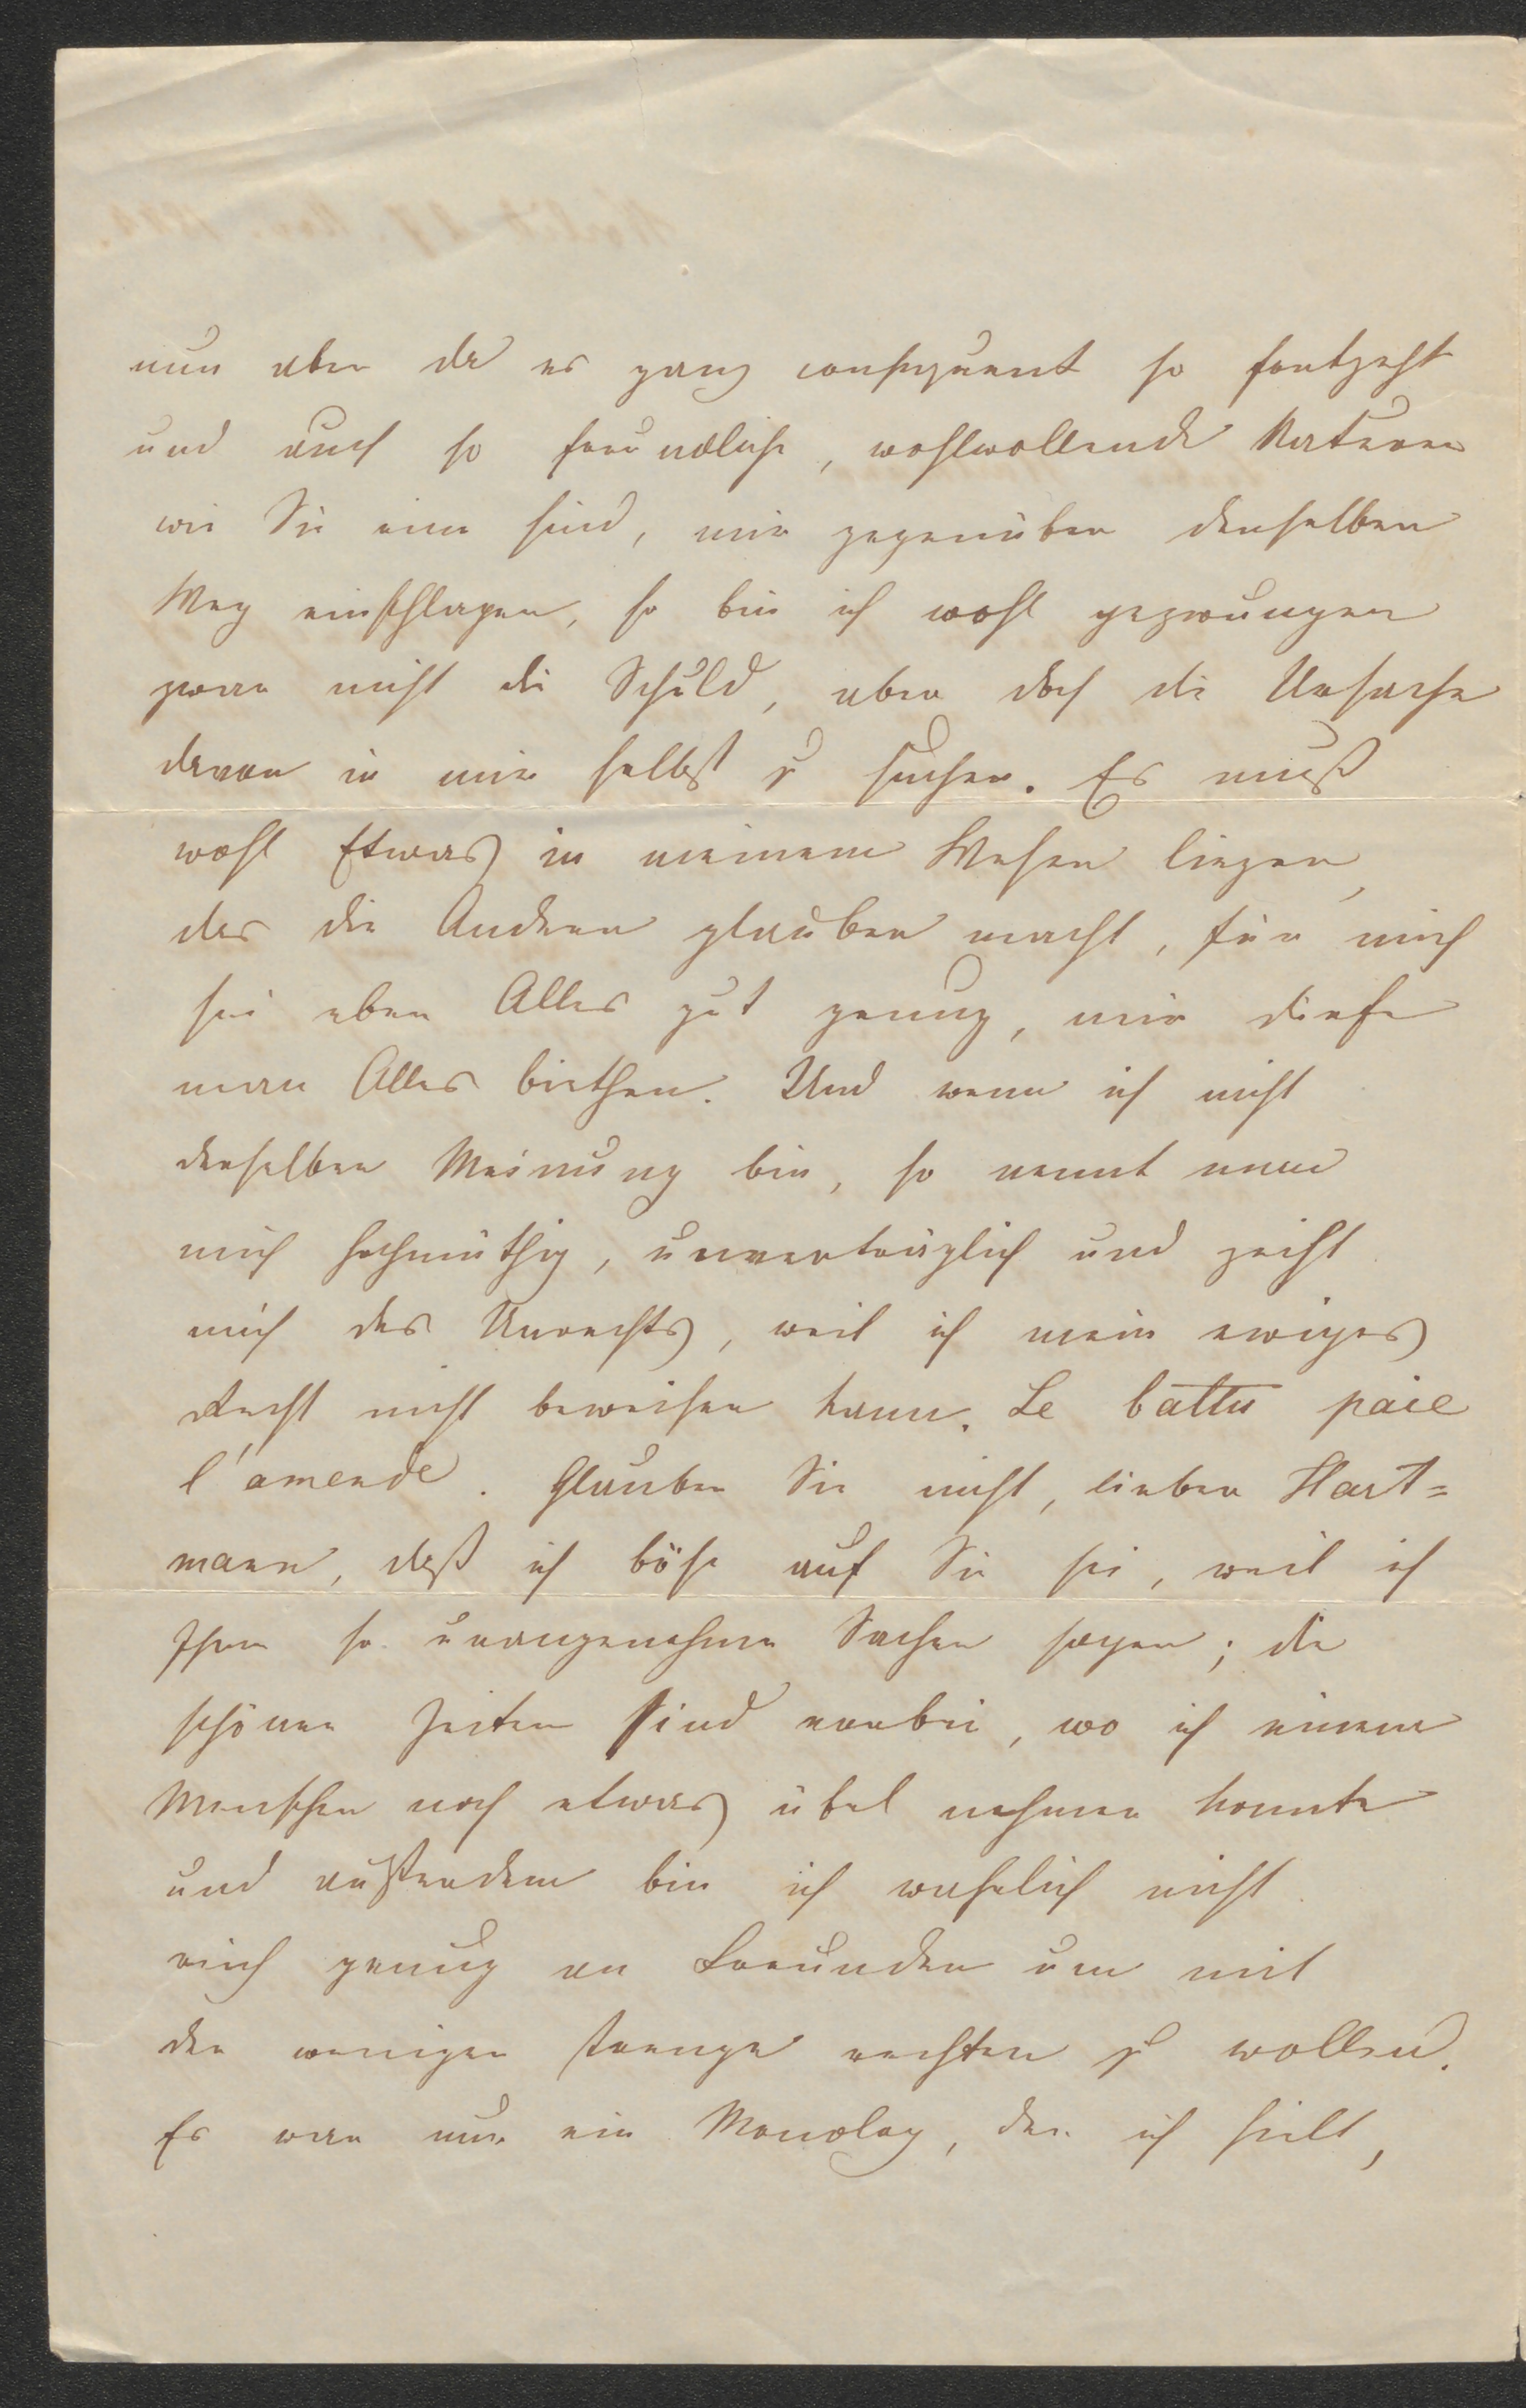 nun aber da es ganz consequent so fortgeht
und auch so freundliche, wohlwollende Naturen
wie Sie eine sind, mir gegenüber denselben
Weg einschlagen, so bin ich wohl gezwungen
zwar nicht die Schuld, aber doch die Ursache
davon in mir selbst zu suchen. Es muß
wohl Etwas in meinem Wesen liegen,
das die Andern glauben macht, für mich
sei eben Alles gut genug, mir dürfe
man Alles biethen. Und wenn ich nicht
derselben Meinung bin, so nennt man
mich hochmüthig, unverträglich und zeiht
mich des Unrechts, weil ich mein ewiges
Recht nicht beweisen kann. Le battu paie
l'amende. Glauben Sie nicht, lieber Hart=
mann, daß ich böse auf Sie sei, weil ich
Ihnen so unangenehme Sachen sagen; die
schönen Zeiten sind vorbei, wo ich einem
Menschen noch etwas übel nehmen konnte
und außerdem bin ich wahrlich nicht
reich genug an Freunden um mit
den wenigen strenge rechten zu wollen.
Es war nur ein Monolog, den ich hielt,